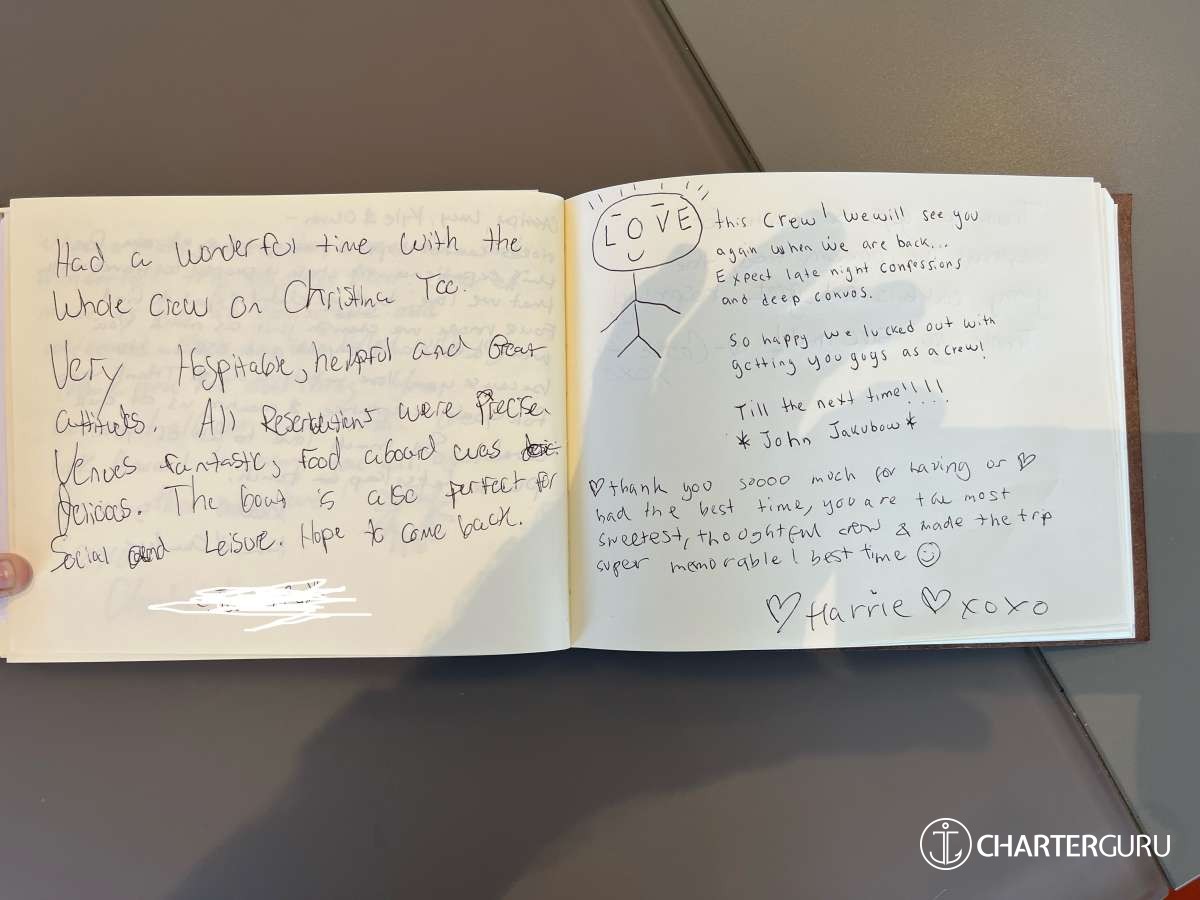 Had a wonderful time with the
Whole crew on Christina Too.
Very Hospitable, helpful and Great
attitudes. All Reservations were Precise.
Venues fantastic, Food aboard was
Delicous. The boat is also perfect for
Social and Leisure. Hope to come back.
LOVE
this crew! we will see you
again when we are back...
Expect late night confessions
and deep convos.
So happy we lucked out with
getting you guys as a crew!
Till the next time!!!!
* John Jakubow *
♡ thank you soooo much for having us ♡
had the best time, you are the most
sweetest, thoughtful crew & made the trip
super memorable! best time ☺
♡ Harrie ♡ xoxo
CHARTERGURU